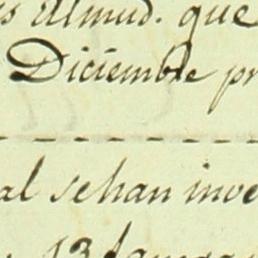 s Almud. que
Diciembre pr
al sehan inve
13 fanega